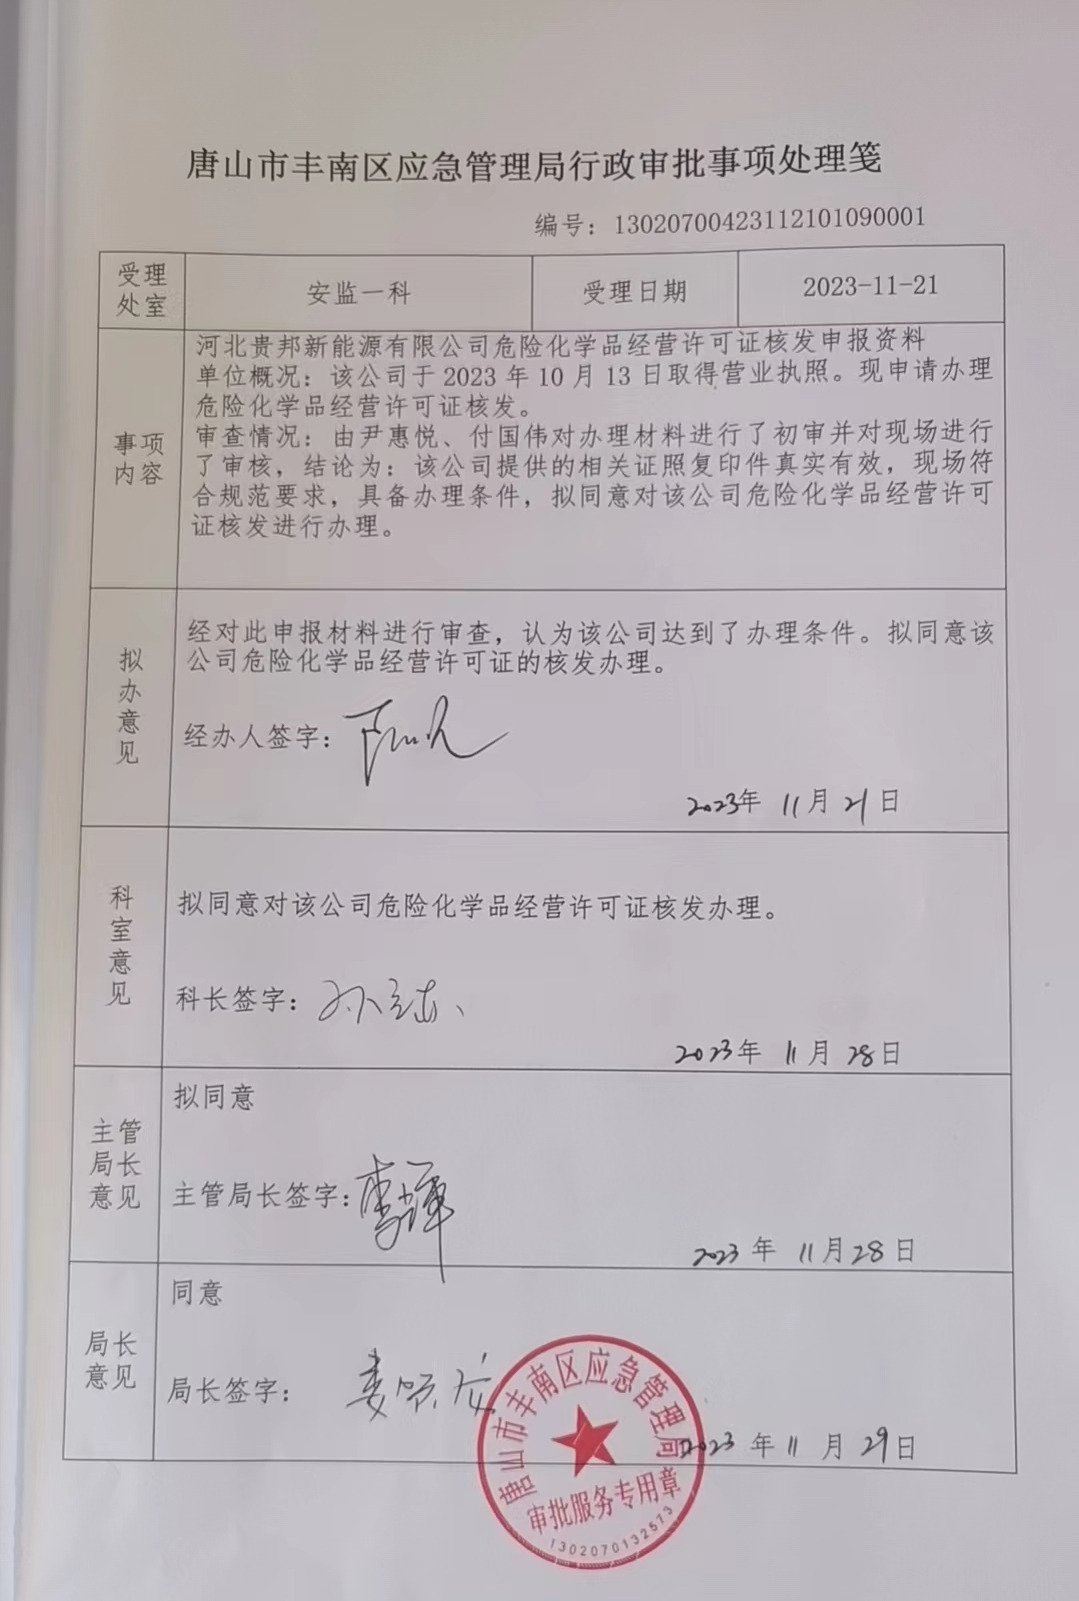 唐山市丰南区应急管理局行政审批事项处理笺
编号：13020700423112101090001
受理
处室
安监一科
受理日期
2023-11-21
事项
内容
河北贵邦新能源有限公司危险化学品经营许可证核发申报资料
单位概况：该公司于 2023 年 10 月 13 日取得营业执照。现申请办理
危险化学品经营许可证核发。
审查情况：由尹惠悦、付国伟对办理材料进行了初审并对现场进行
了审核，结论为：该公司提供的相关证照复印件真实有效，现场符
合规范要求，具备办理条件，拟同意对该公司危险化学品经营许可
证核发进行办理。
拟
办
意
见
经对此申报材料进行审查，认为该公司达到了办理条件。拟同意该
公司危险化学品经营许可证的核发办理。
经办人签字：
2023年 11月 21日
科
室
意
见
拟同意对该公司危险化学品经营许可证核发办理。
科长签字：
2023年 11月 28日
主管
局长
意见
拟同意
主管局长签字：
2023年 11月28日
局长
意见
同意
局长签字：
2023年11月29日
唐山市丰南区应急管理局
审批服务专用章
1302070132573